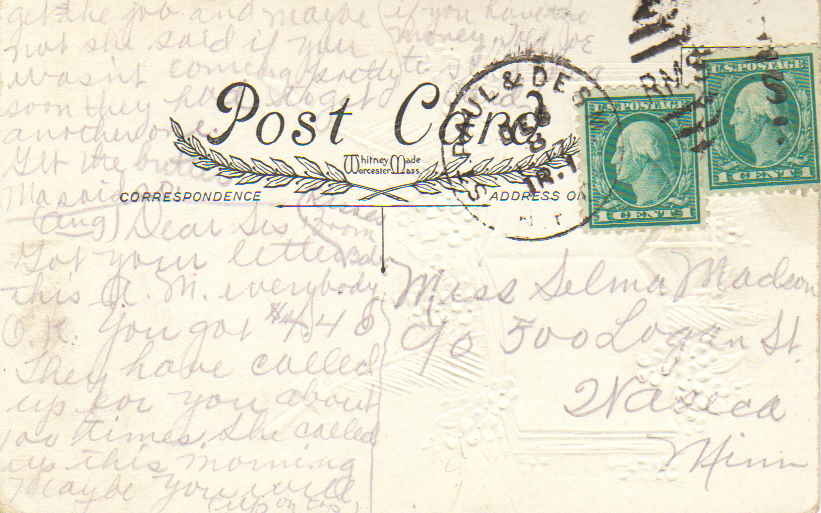 get the job and maybe
not she said if you
wasn't coming pretty
soon they had to get
another one
Get the
if you have the
money
Post Card
Whitney Made
Worcester Mass.
CORRESPONDENCE
ADDRESS ON
ST. PAUL & DES
TR. 1
R.P.O.
U.S. POSTAGE
1 CENT 1
U.S. POSTAGE
1 CENT 1
(Aug) Dear Sis
Got your letter
this A.M. everybody
O.K. You got $4.48
They have called
up for you about
100 times. She called
up this morning
Maybe you will
(up on top)
Miss Selma Madson
c/o 500 Logan St.
Waseca
Minn